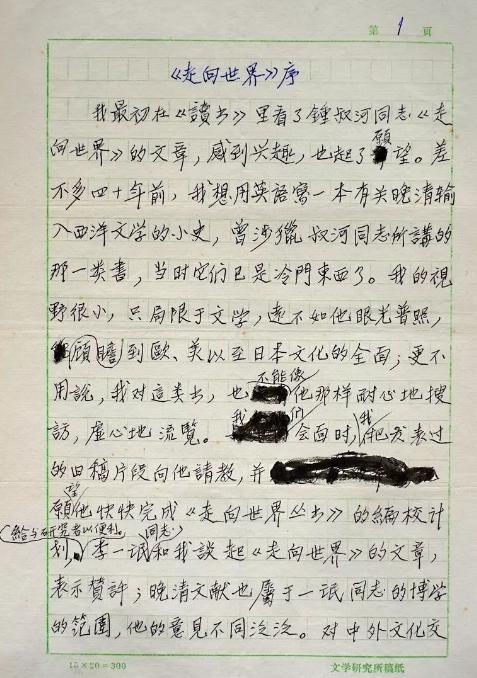 第 1 页
《走向世界》序
我最初在《讀书》里看了鍾叔河同志《走
向世界》的文章，感到兴趣，也起了願望。差
不多四十年前，我想用英語寫一本有关晚清输
入西洋文学的小史，曾涉獵叔河同志所講的
那一类書，当时它们已是冷門東西了。我的視
野很小，只局限于文学，远不如他眼光普照，
顧瞻到歐、美以至日本文化的全面；更不
用說，我对這类书，也不能像他那样耐心地搜
訪，虚心地流覽。我们会面时，我把发表过
的旧稿片段向他請教，并
願望他快快完成《走向世界丛书》的編校计
划，給与研究者以便利。李一氓同志和我談起《走向世界》的文章，
表示賛許；晚清文献也屬于一氓同志的博学
的范围，他的意見不同泛泛。对中外文化交
15×20=300
文学研究所稿纸